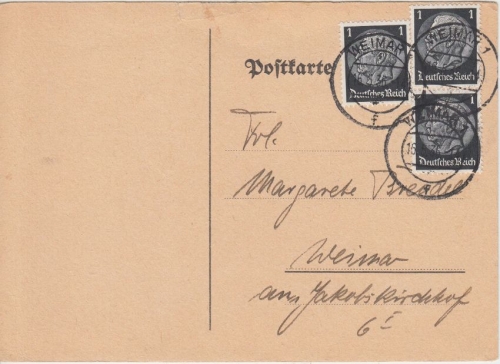 1 Deutsches Reich
1 Deutsches Reich
1 Deutsches Reich
WEIMAR 1
WEIMAR
WEIMAR
f
Postkarte
Frl.
Margarete
Weimar
am Jakobskirchhof
6 I